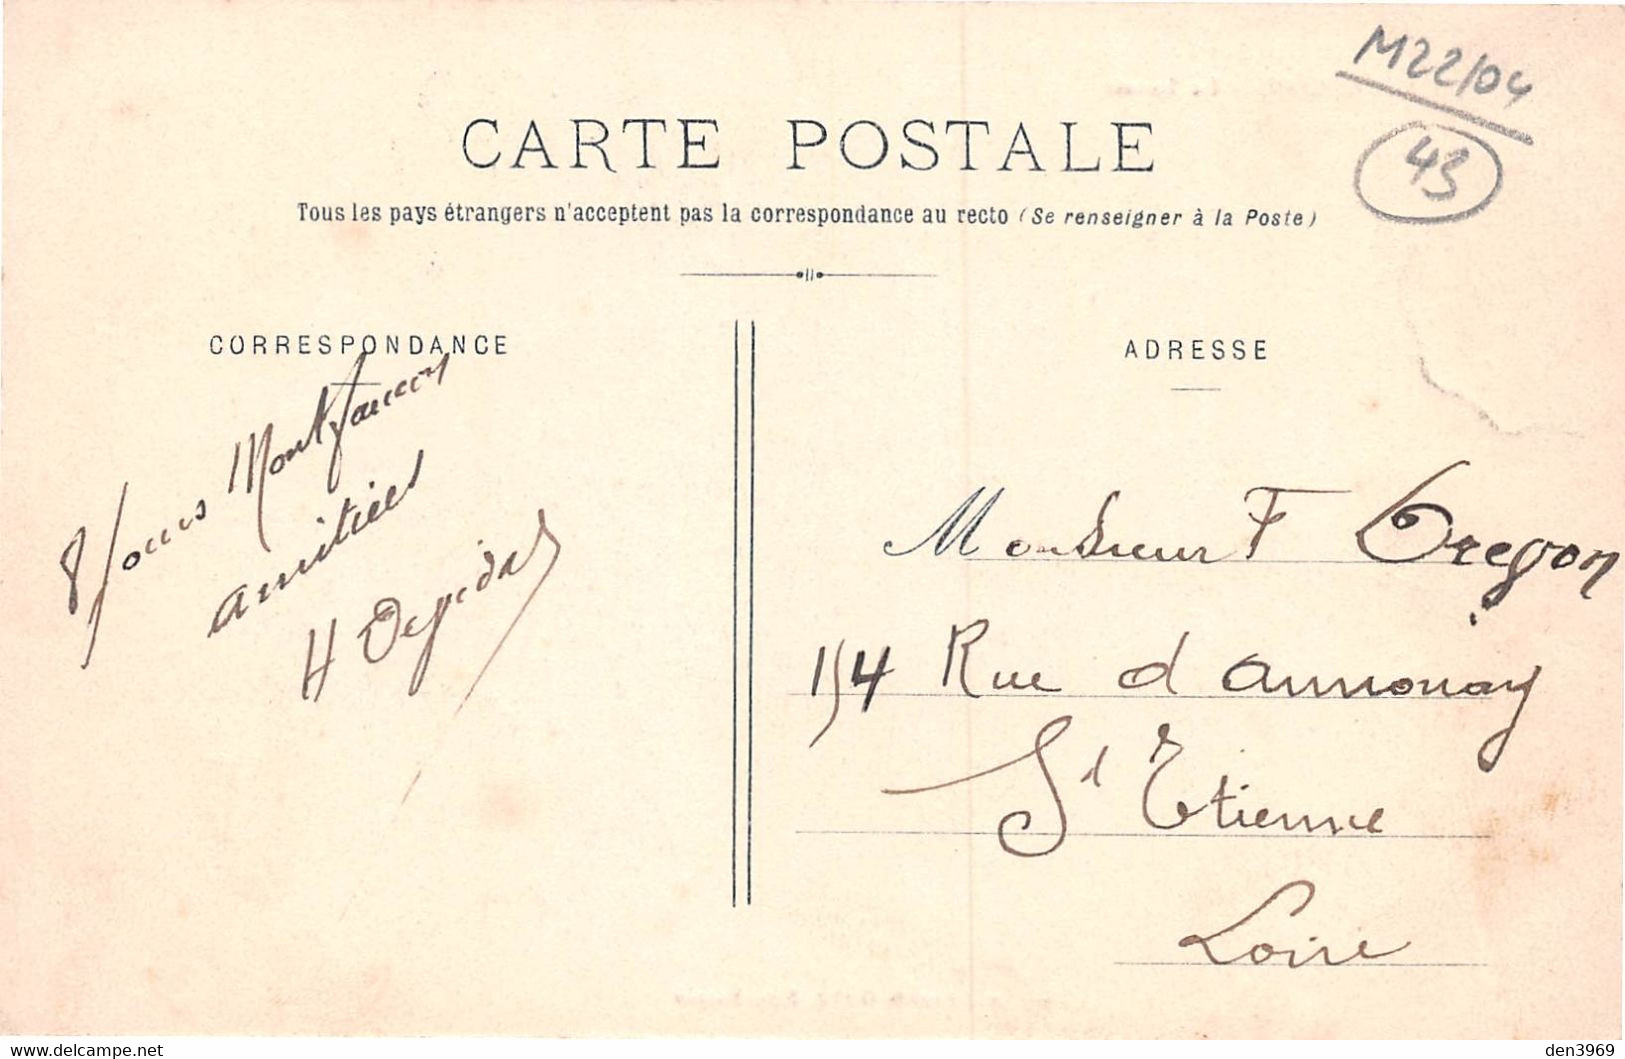 M22/04
43
CARTE POSTALE
Tous les pays étrangers n'acceptent pas la correspondance au recto (Se renseigner à la Poste)
CORRESPONDANCE
ADRESSE
Montfaucon
amitiés
H
Monsieur F
154 Rue d annonay
St Etienne
Loire
den3969